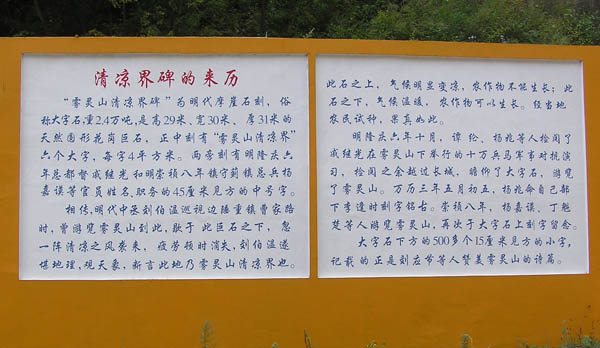 清凉界碑的来历
“雾灵山清凉界碑”为明代摩崖石刻，俗
称大字石重2.4万吨，是高29米、宽30米、厚31米的
天然圆形花岗巨石，正中刻有“雾灵山清凉界”
六个大字，每字4平方米。两旁刻有明隆庆六
年总都督戚继光和明崇祯八年镇守蓟镇总兵杨
嘉谟等官员姓名，职务的45厘米见方的中号字。
相传，明代中丞刘伯温巡视边陲重镇曹家路
时，曾游览雾灵山到此，歇于此巨石之下，忽
一阵清凉之风袭来，疲劳顿时消失，刘伯温遂
堪地理，观天象，断言此地乃雾灵山清凉界也。
此石之上，气候明显变凉，农作物不能生长；此
石之下，气候温暖，农作物可以生长。经当地
农民试种，果真如此。
明隆庆六年十月，谭纶、杨兆等人检阅了
戚继光在雾灵山下举行的十万兵马军事对抗演
习，检阅之余越过长城，瞻仰了大字石，游览
了雾灵山。万历三年五月初五，杨兆命自己部
下李逢时刻字铭古。崇祯八年，杨嘉谟、丁魁
楚等人游览雾灵山，再次于大字石上刻字留念。
大字石下方的500多个15厘米见方的小字，
记载的正是刘应节等人赞美雾灵山的诗篇。